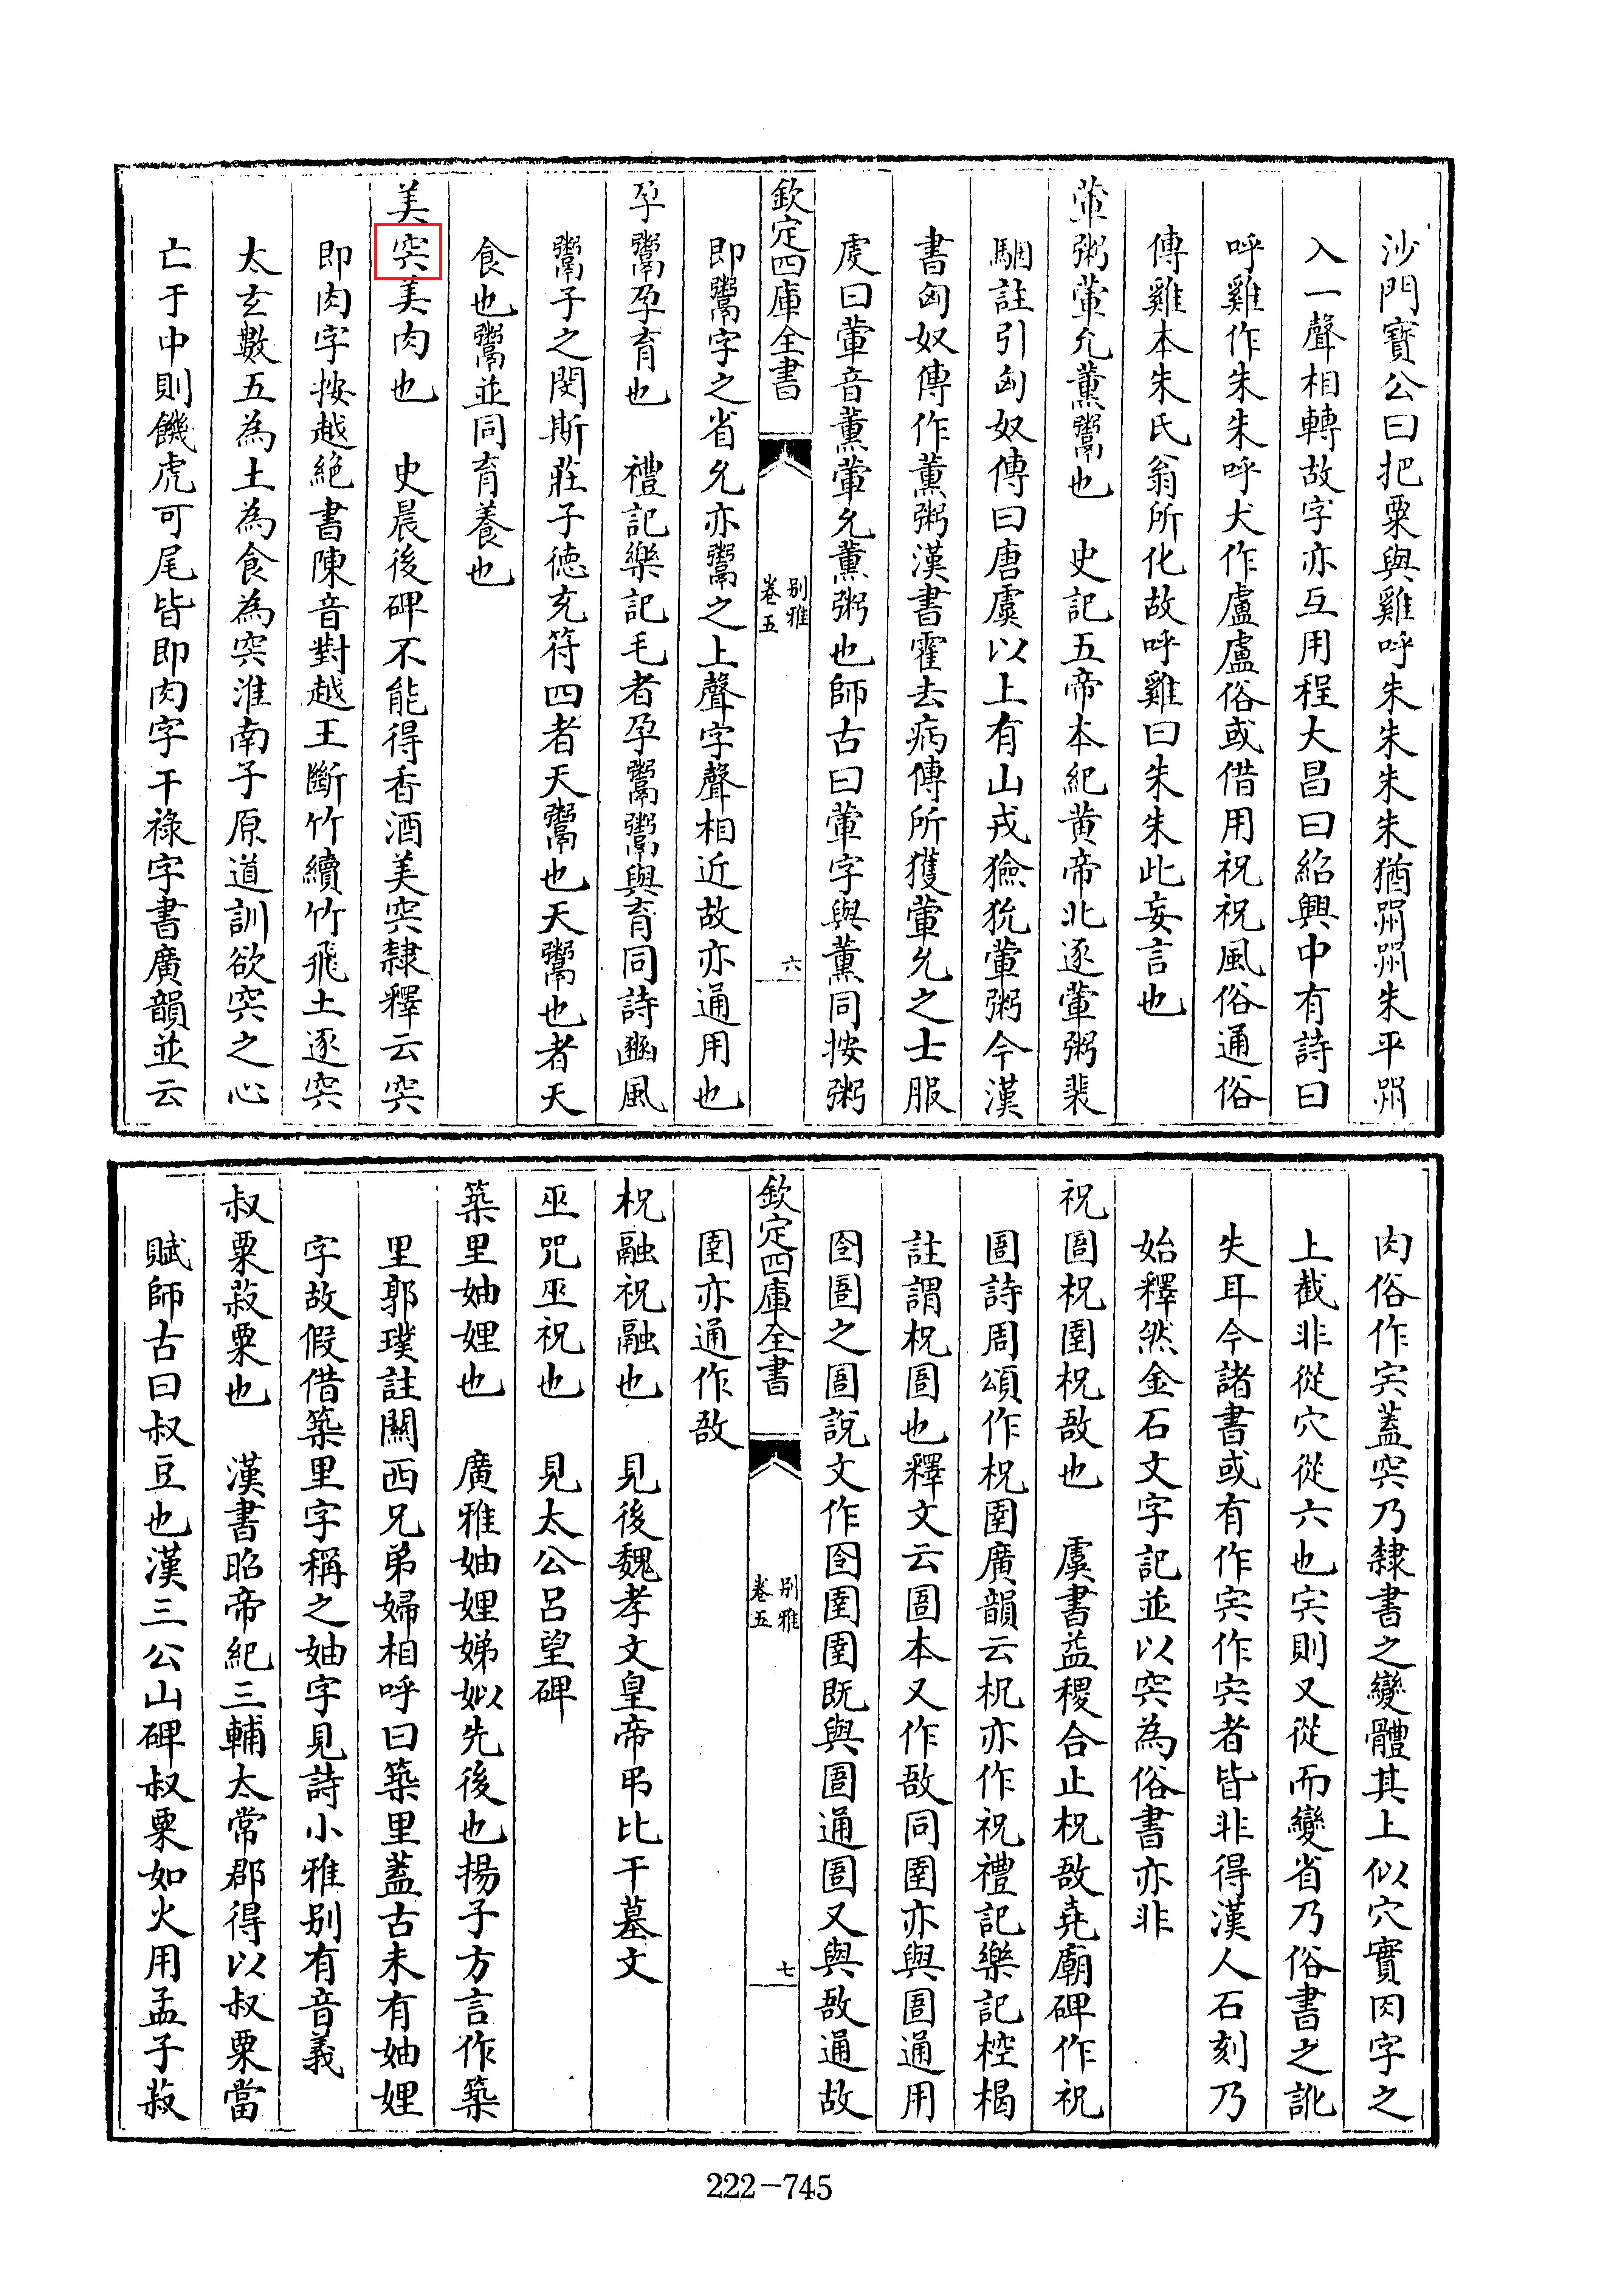 沙門寶公曰把粟與雞呼朱朱朱朱猶喌喌朱平喌
入一聲相轉故字亦互用程大昌曰紹興中有詩曰
呼雞作朱朱呼犬作盧盧俗或借用祝祝風俗通俗
傳雞本朱氏翁所化故呼雞曰朱朱此妄言也
葷粥葷允薰鬻也　史記五帝本紀黄帝北逐葷粥裴
駰註引匈奴傳曰唐虞以上有山戎獫狁葷粥今漢
書匈奴傳作薰粥漢書霍去病傳所獲葷允之士服
䖍曰葷音薰葷允薰粥也師古曰葷字與薰同按粥
欽定四庫全書
别雅
卷五
六
即鬻字之省允亦鬻之上聲字聲相近故亦通用也
孕鬻孕育也　禮記樂記毛者孕鬻鬻與育同詩豳風
鬻子之閔斯莊子徳充符四者天鬻也天鬻也者天
食也鬻並同育養也
美⿱穴六美肉也　史晨後碑不能得香酒美⿱穴六隸釋云⿱穴六
即肉字按越絶書陳音對越王斷竹續竹飛土逐⿱穴六
太玄數五為土為食為⿱穴六淮南子原道訓欲⿱穴六之心
亡于中則饑虎可尾皆即肉字干禄字書廣韻並云
肉俗作宍蓋⿱穴六乃隸書之變體其上似穴實肉字之
上截非從穴從六也宍則又從而變省乃俗書之訛
失耳今諸書或有作宍作宍者皆非得漢人石刻乃
始釋然金石文字記並以⿱穴六為俗書亦非
祝圄柷圉柷敔也　虞書益稷合止柷敔堯廟碑作祝
圄詩周頌作柷圉廣韻云柷亦作祝禮記樂記椌楬
註謂柷圄也釋文云圄本又作敔同圉亦與圄通用
囹圄之圄說文作囹圉圉既與圄通圄又與敔通故
欽定四庫全書
别雅
卷五
七
圉亦通作敔
柷融祝融也　見後魏孝文皇帝弔比干墓文
巫咒巫祝也　見太公呂望碑
築里妯娌也　廣雅妯娌娣姒先後也揚子方言作築
里郭璞註關西兄弟婦相呼曰築里蓋古未有妯娌
字故假借築里字稱之妯字見詩小雅别有音義
叔粟菽粟也　漢書昭帝紀三輔太常郡得以叔粟當
賦師古曰叔豆也漢三公山碑叔粟如火用孟子菽
222-745